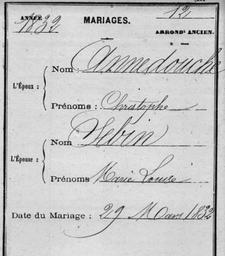 ANNÉE MARIAGES. 12
1832 ARRONDT ANCIEN.
L'Époux: Nom: Annedouche
Prénoms: Christophe
L'Épouse: Nom: Hebin
Prénoms Marie Louise
Date du Mariage: 29 Mars 1832